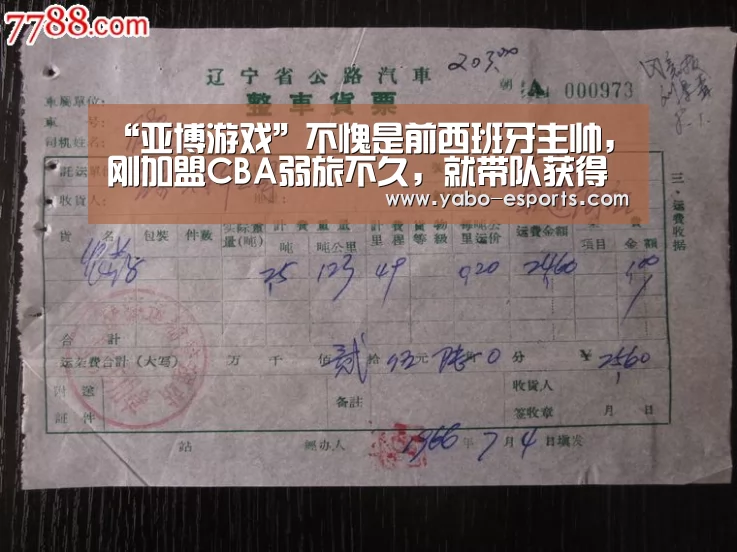 7788.com
辽宁省公路汽車
203.00
朝
A 000973
整車貨票
車属單位:
車 号:
司机姓名:
“亚博游戏”不愧是前西班牙主帅,
刚加盟CBA弱旅不久,就带队获得
www.yabo-esports.com
託运單位
收貨人:
三·运费收据
貨 名 包裝 件數 实际重量(吨) 計費重量 吨 吨公里 計費里程 貨物等級 每吨公里运价 运費金額 項目 金額
25 123 49 0.20 2460 100
合 計
运杂費合計(大写) 万 千 佰 贰 拾 伍 元 陆 角 0 分 ¥ 2560
附 送
証 件
备註
收貨人
签收章 月 日
站 經办人 1966 年 7 月 4 日填发